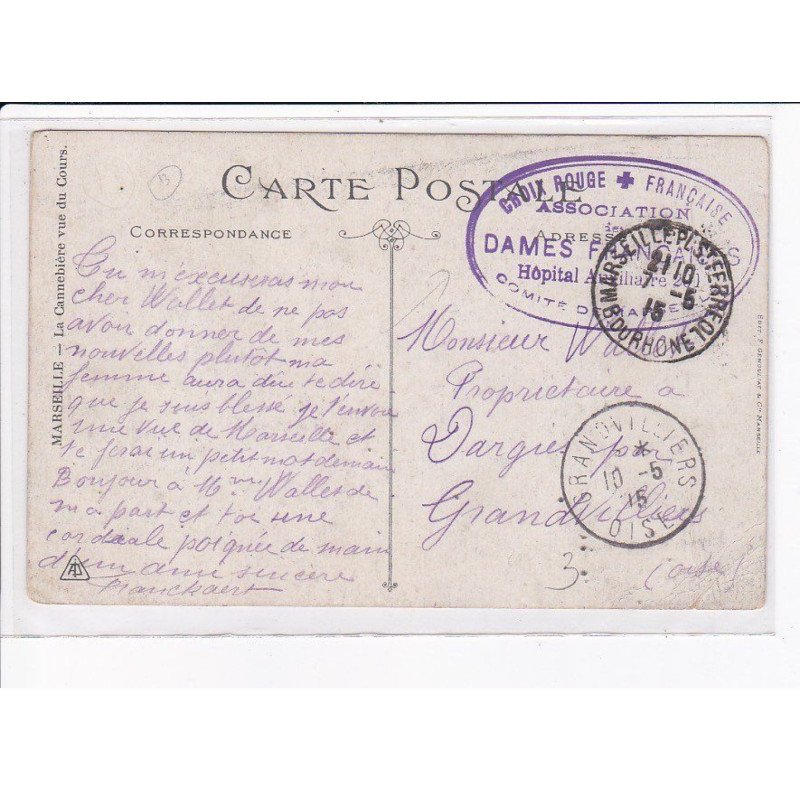 CARTE POSTALE
CORRESPONDANCE
ADRESSE
MARSEILLE. — La Cannebière vue du Cours.
Tu m'excuseras mon
cher Wallet de ne pas
avoir donner de mes
nouvelles plutot ma
femme aura du te dire
que je suis blessé je t'envoie
une vue de Marseille et
te ferai un petit mot demain
Bonjour à Mme Wallet de
ma part et toi une
cordiale poignée de main
d'un ami sincère
CROIX ROUGE FRANÇAISE
ASSOCIATION
des
DAMES FRANÇAISES
Hôpital Auxiliaire
COMITÉ DE MARSEILLE
MARSEILLE-PL. ST FERREOL
21 10
7 -5
15
BOUCHES DU RHONE
Monsieur Wallet
Propriétaire a
Dargies par
Grandvilliers
(Oise)
GRANDVILLIERS
*
10 -5
15
OISE
3